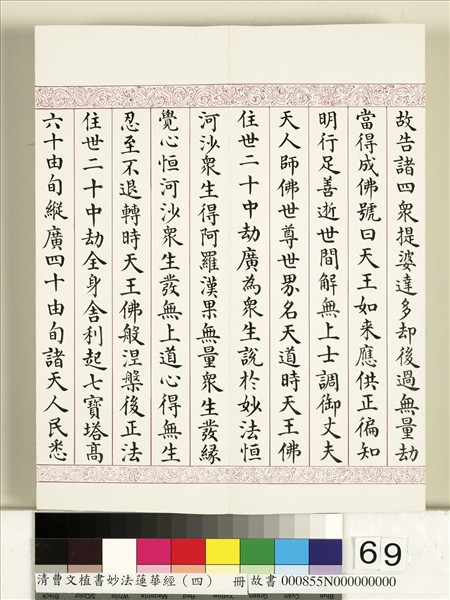 故告諸四衆提婆達多却後過無量劫
當得成佛號曰天王如来應供正徧知
明行足善逝世間解無上士調御丈夫
天人師佛世尊世界名天道時天王佛
住世二十中劫廣為衆生說於妙法恒
河沙衆生得阿羅漢果無量衆生發緣
覺心恒河沙衆生發無上道心得無生
忍至不退轉時天王佛般涅槃後正法
住世二十中劫全身舍利起七寶塔高
六十由旬縱廣四十由旬諸天人民悉
69
清曹文植書妙法蓮華經（四） 冊 故書 000855N000000000